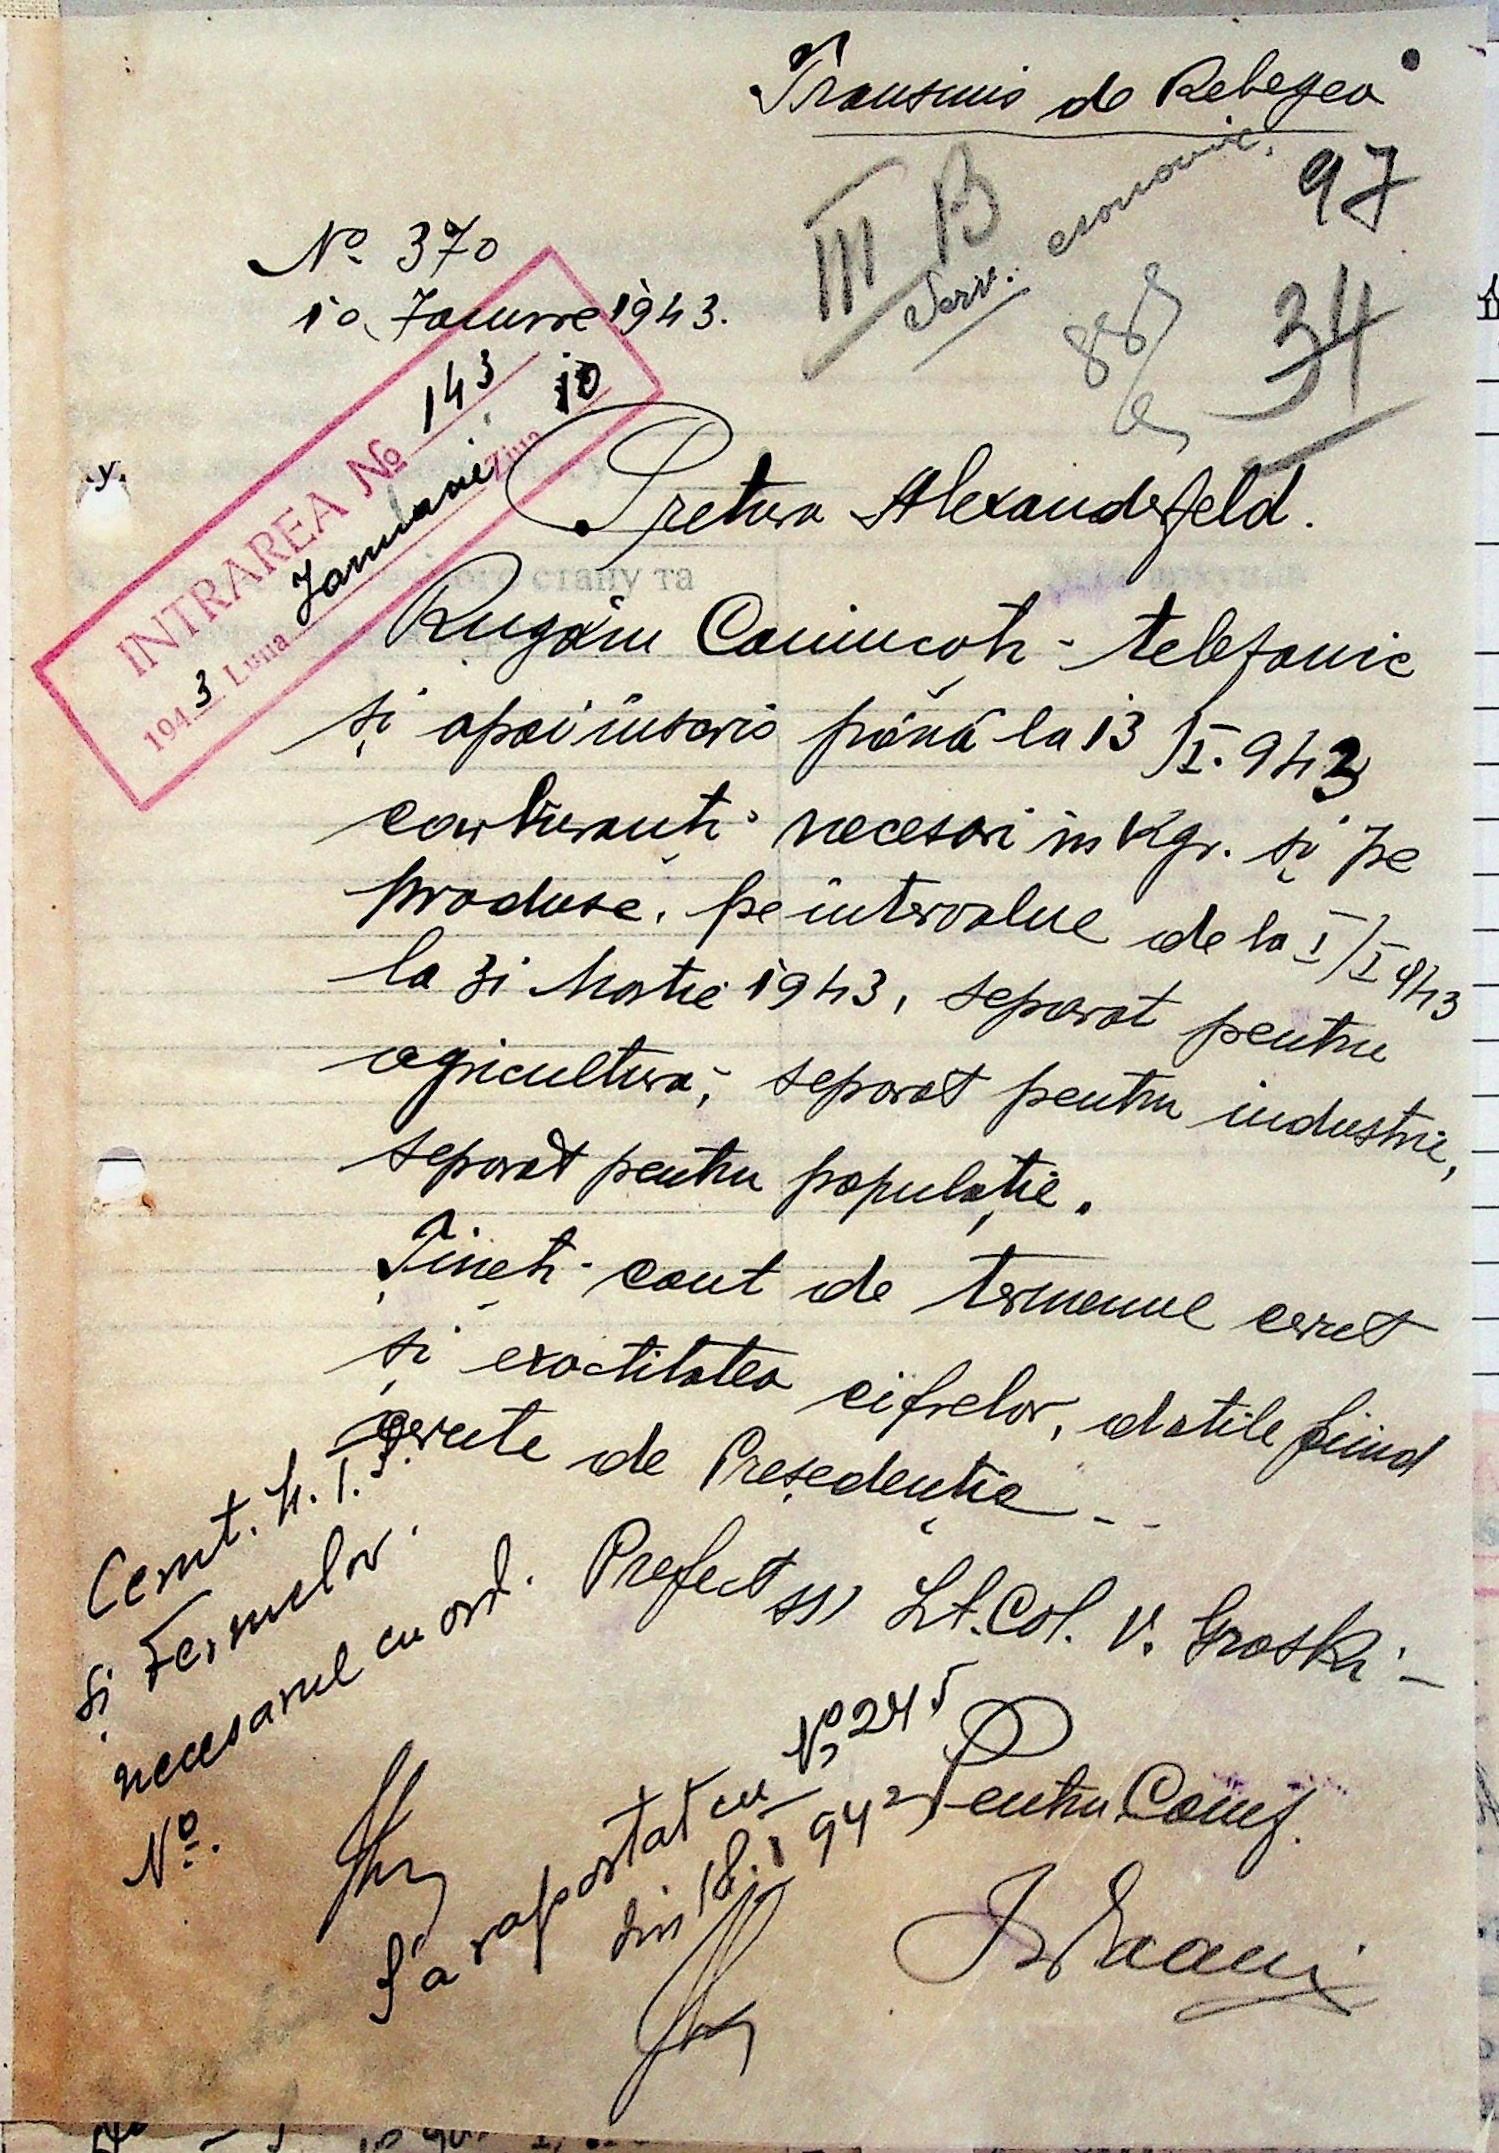 Transmis de Rebegea
III B
Serv. economic.
97
34
88
No 370
10 Januarie 1943.
INTRAREA No 143
1943 Luna Januarie Ziua 10
Pretura Alexanderfeld.
Rugăm Comunicați telefonic
și apoi înscris până la 13/I.943
carburanți necesari în Kgr. și pe
produse, pe intervalul de la I/I 943
la 31 Martie 1943, separat pentru
agricultură, separat pentru industrie,
separat pentru populație.
Țineți cont de termenul cerut
și exactitatea cifrelor, datile fiind
cerute de Președenție --
Prefect ss) Lt. Col. V. Groski -
Cerut. M.T.S.
și Fermelor.
necesarul cu ord.
No.
S'a raportat cu No 245
din 18.I 942
Pentru Conf.